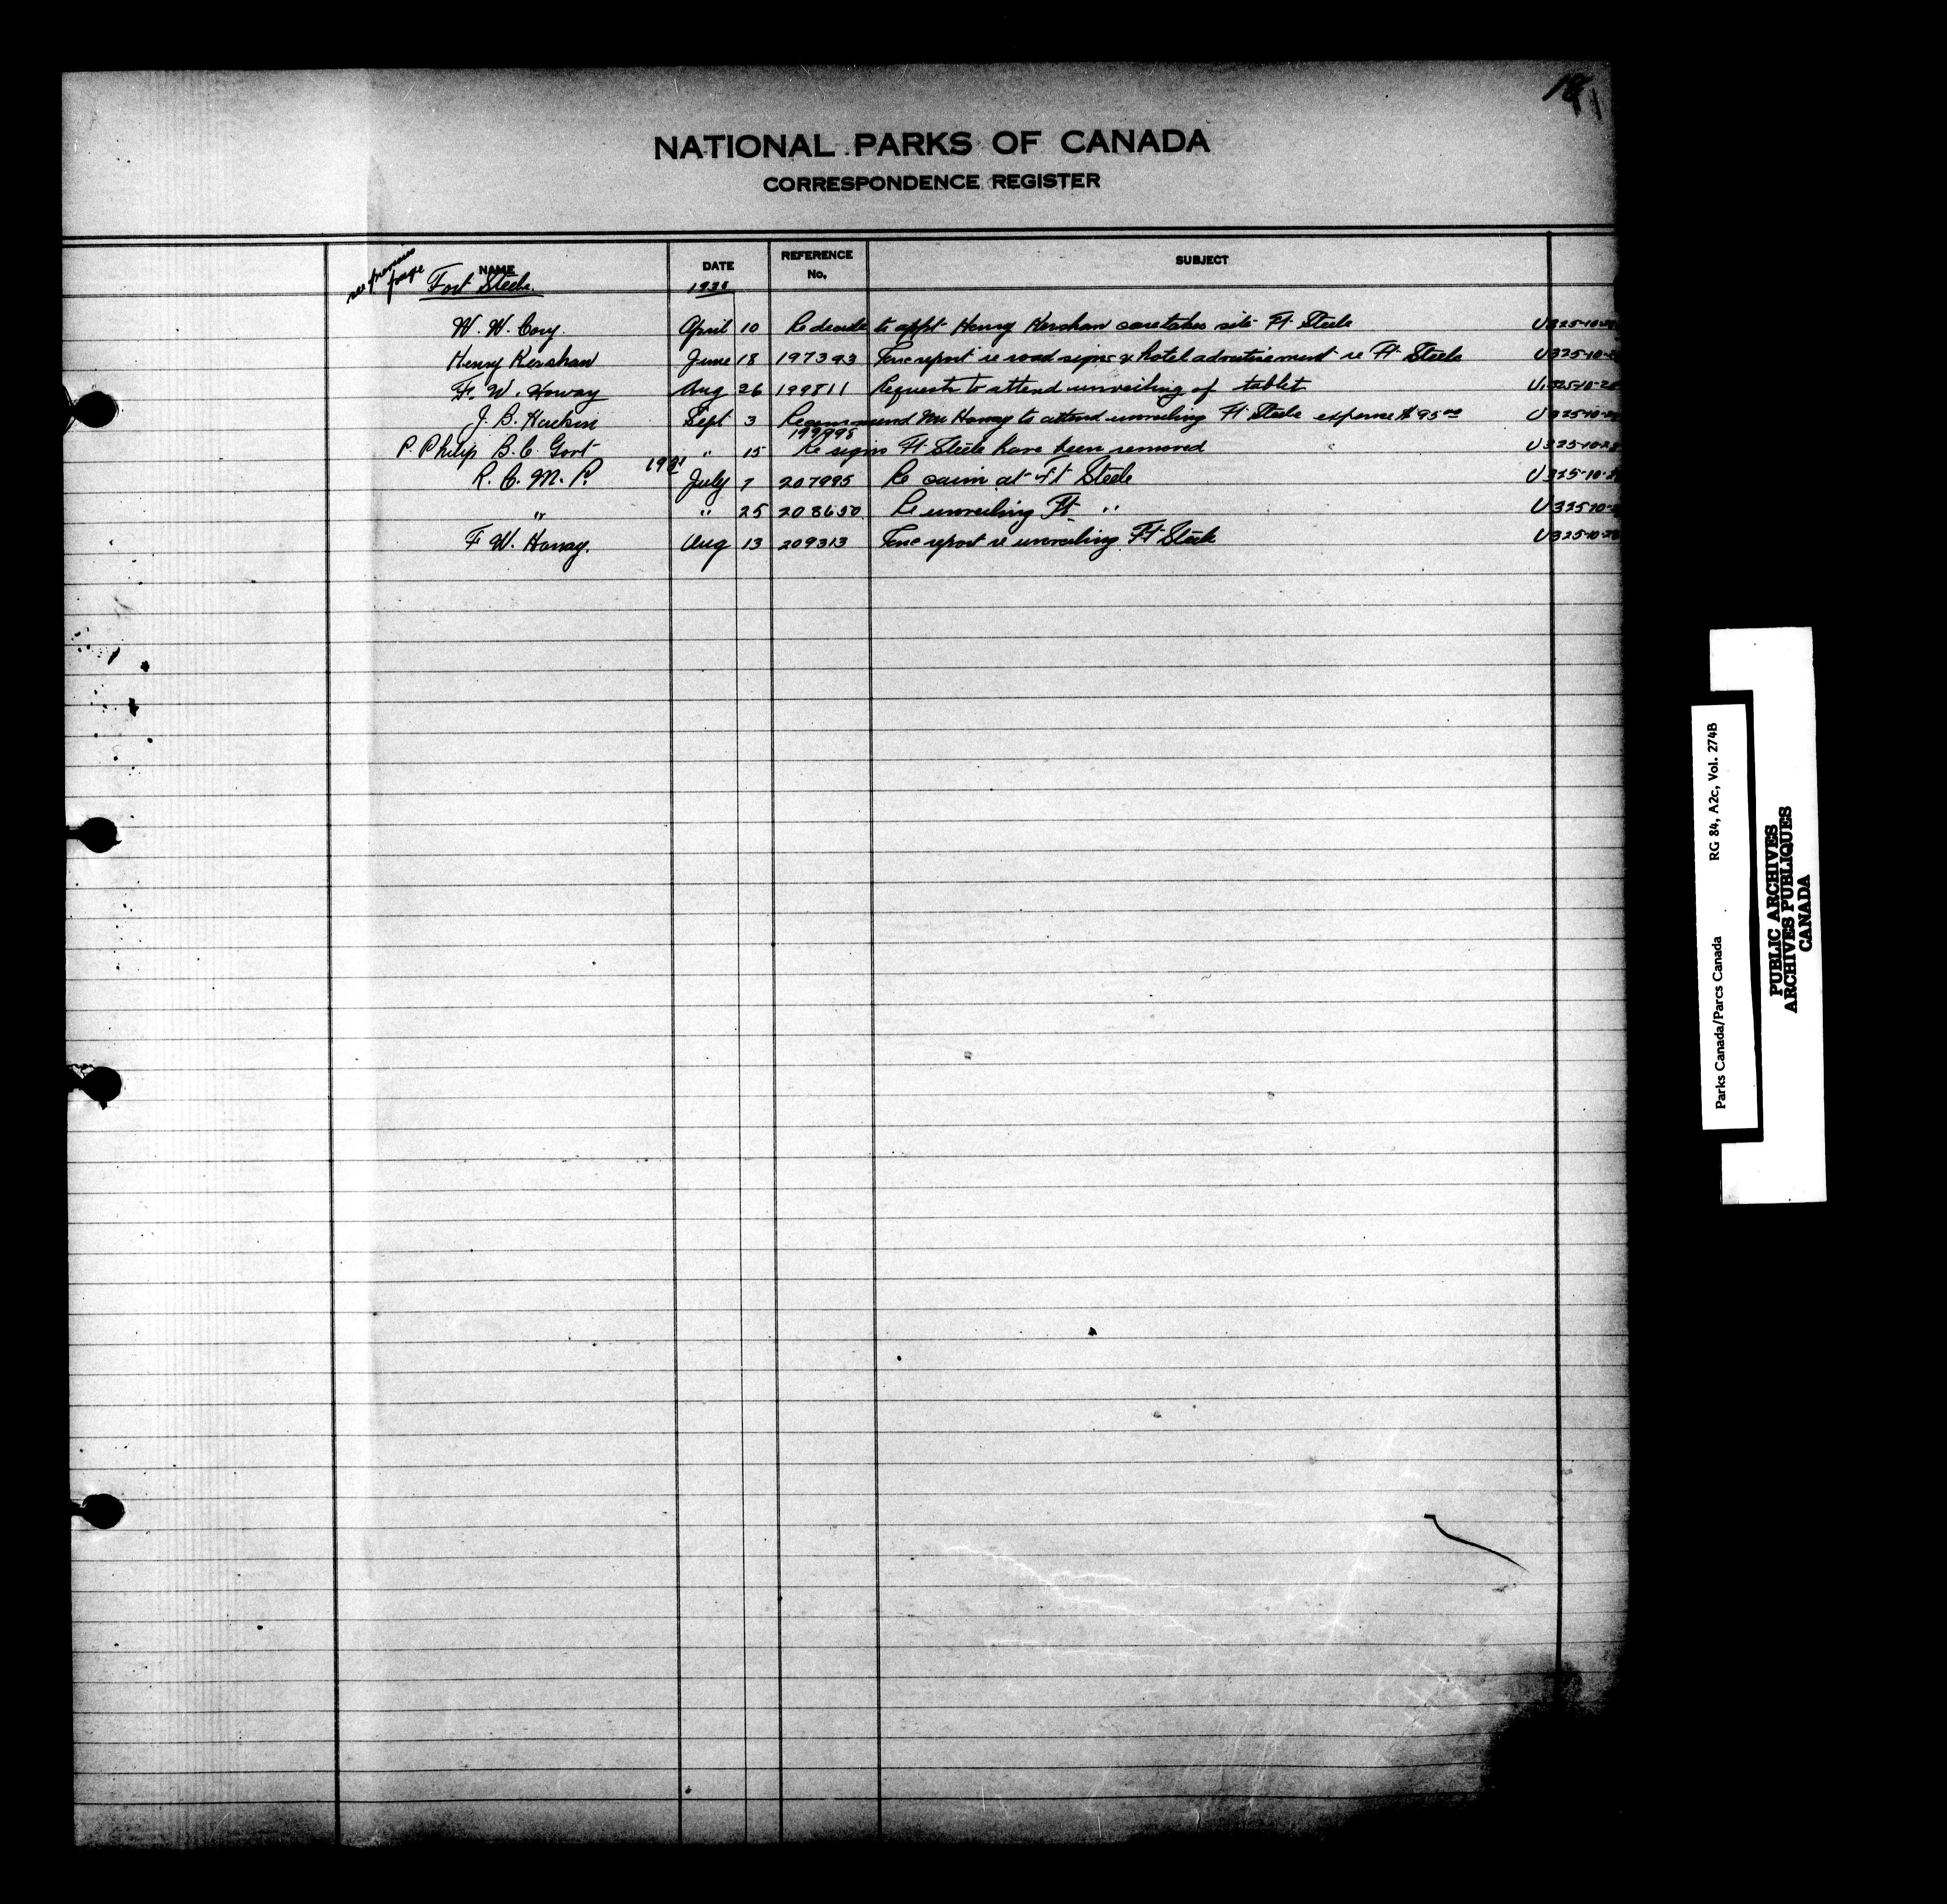 NATIONAL PARKS OF CANADA
CORRESPONDENCE REGISTER
see previous page
NAME DATE REFERENCE No. SUBJECT
Fort Steele.
W. W. Cory. April 10 Re decide to appt Henry Kershaw caretaker site Ft Steele U325-10-
Henry Kershaw June 18 197393 report re road signs & hotel advertisement re Ft Steele U325-10-
F. W. Howay Aug 26 199811 Requests to attend unveiling of tablet U325-10-20
J. B. Harkin Sept 3 Recommend Mr Howay to attend unveiling Ft Steele expense $95.00 U325-10-
P. Philip B.C. Govt " 15 199995 Re signs Ft Steele have been removed U325-10-2
R. C. M. P. July 7 207995 Re cairn at Ft Steele U325-10-2
" " 25 208650 Re unveiling Ft " U32510-
F W. Howay. Aug 13 209313 report re unveiling Ft Steele U325-10-20
Parks Canada/Parcs Canada RG 84, A2c, Vol. 274B
PUBLIC ARCHIVES
ARCHIVES PUBLIQUES
CANADA